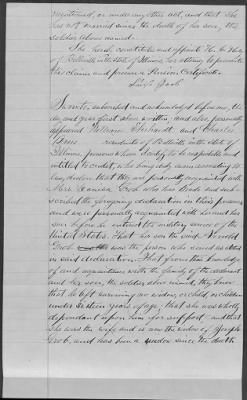 mentioned, or under any other act, and that She
has not married since the death of her son, the
soldier above named.
She hereby constitutes and appoints
of Belleville in the state of Illinois, her attorney to prosecute
this claim and procure a Pension Certificate.
Sworn to, subscribed and acknowledged before me, the
day and year first above written, and also personally
appeared William and Charles
residents of Belleville in the state of
Illinois, persons whom I certify to be respectable and
entitled to credit, who being duly sworn according to
law, declare that they are personally acquainted with
Mrs. who has made and sub-
scribed the foregoing declaration in their presence
and were personally acquainted with her and her
son before he entered the military service of the
United States. That her son the said Arnold
was the person who served as stated
in said declaration. That from their knowledge
of and acquaintance with the family of the deceased
and her son, the soldier above named, they know
that he left surviving no widow, or child, or children
under sixteen years of age; that she was wholly
dependant upon him for support and that
She was the wife and is now the widow of Joseph
and has been a widow since the death